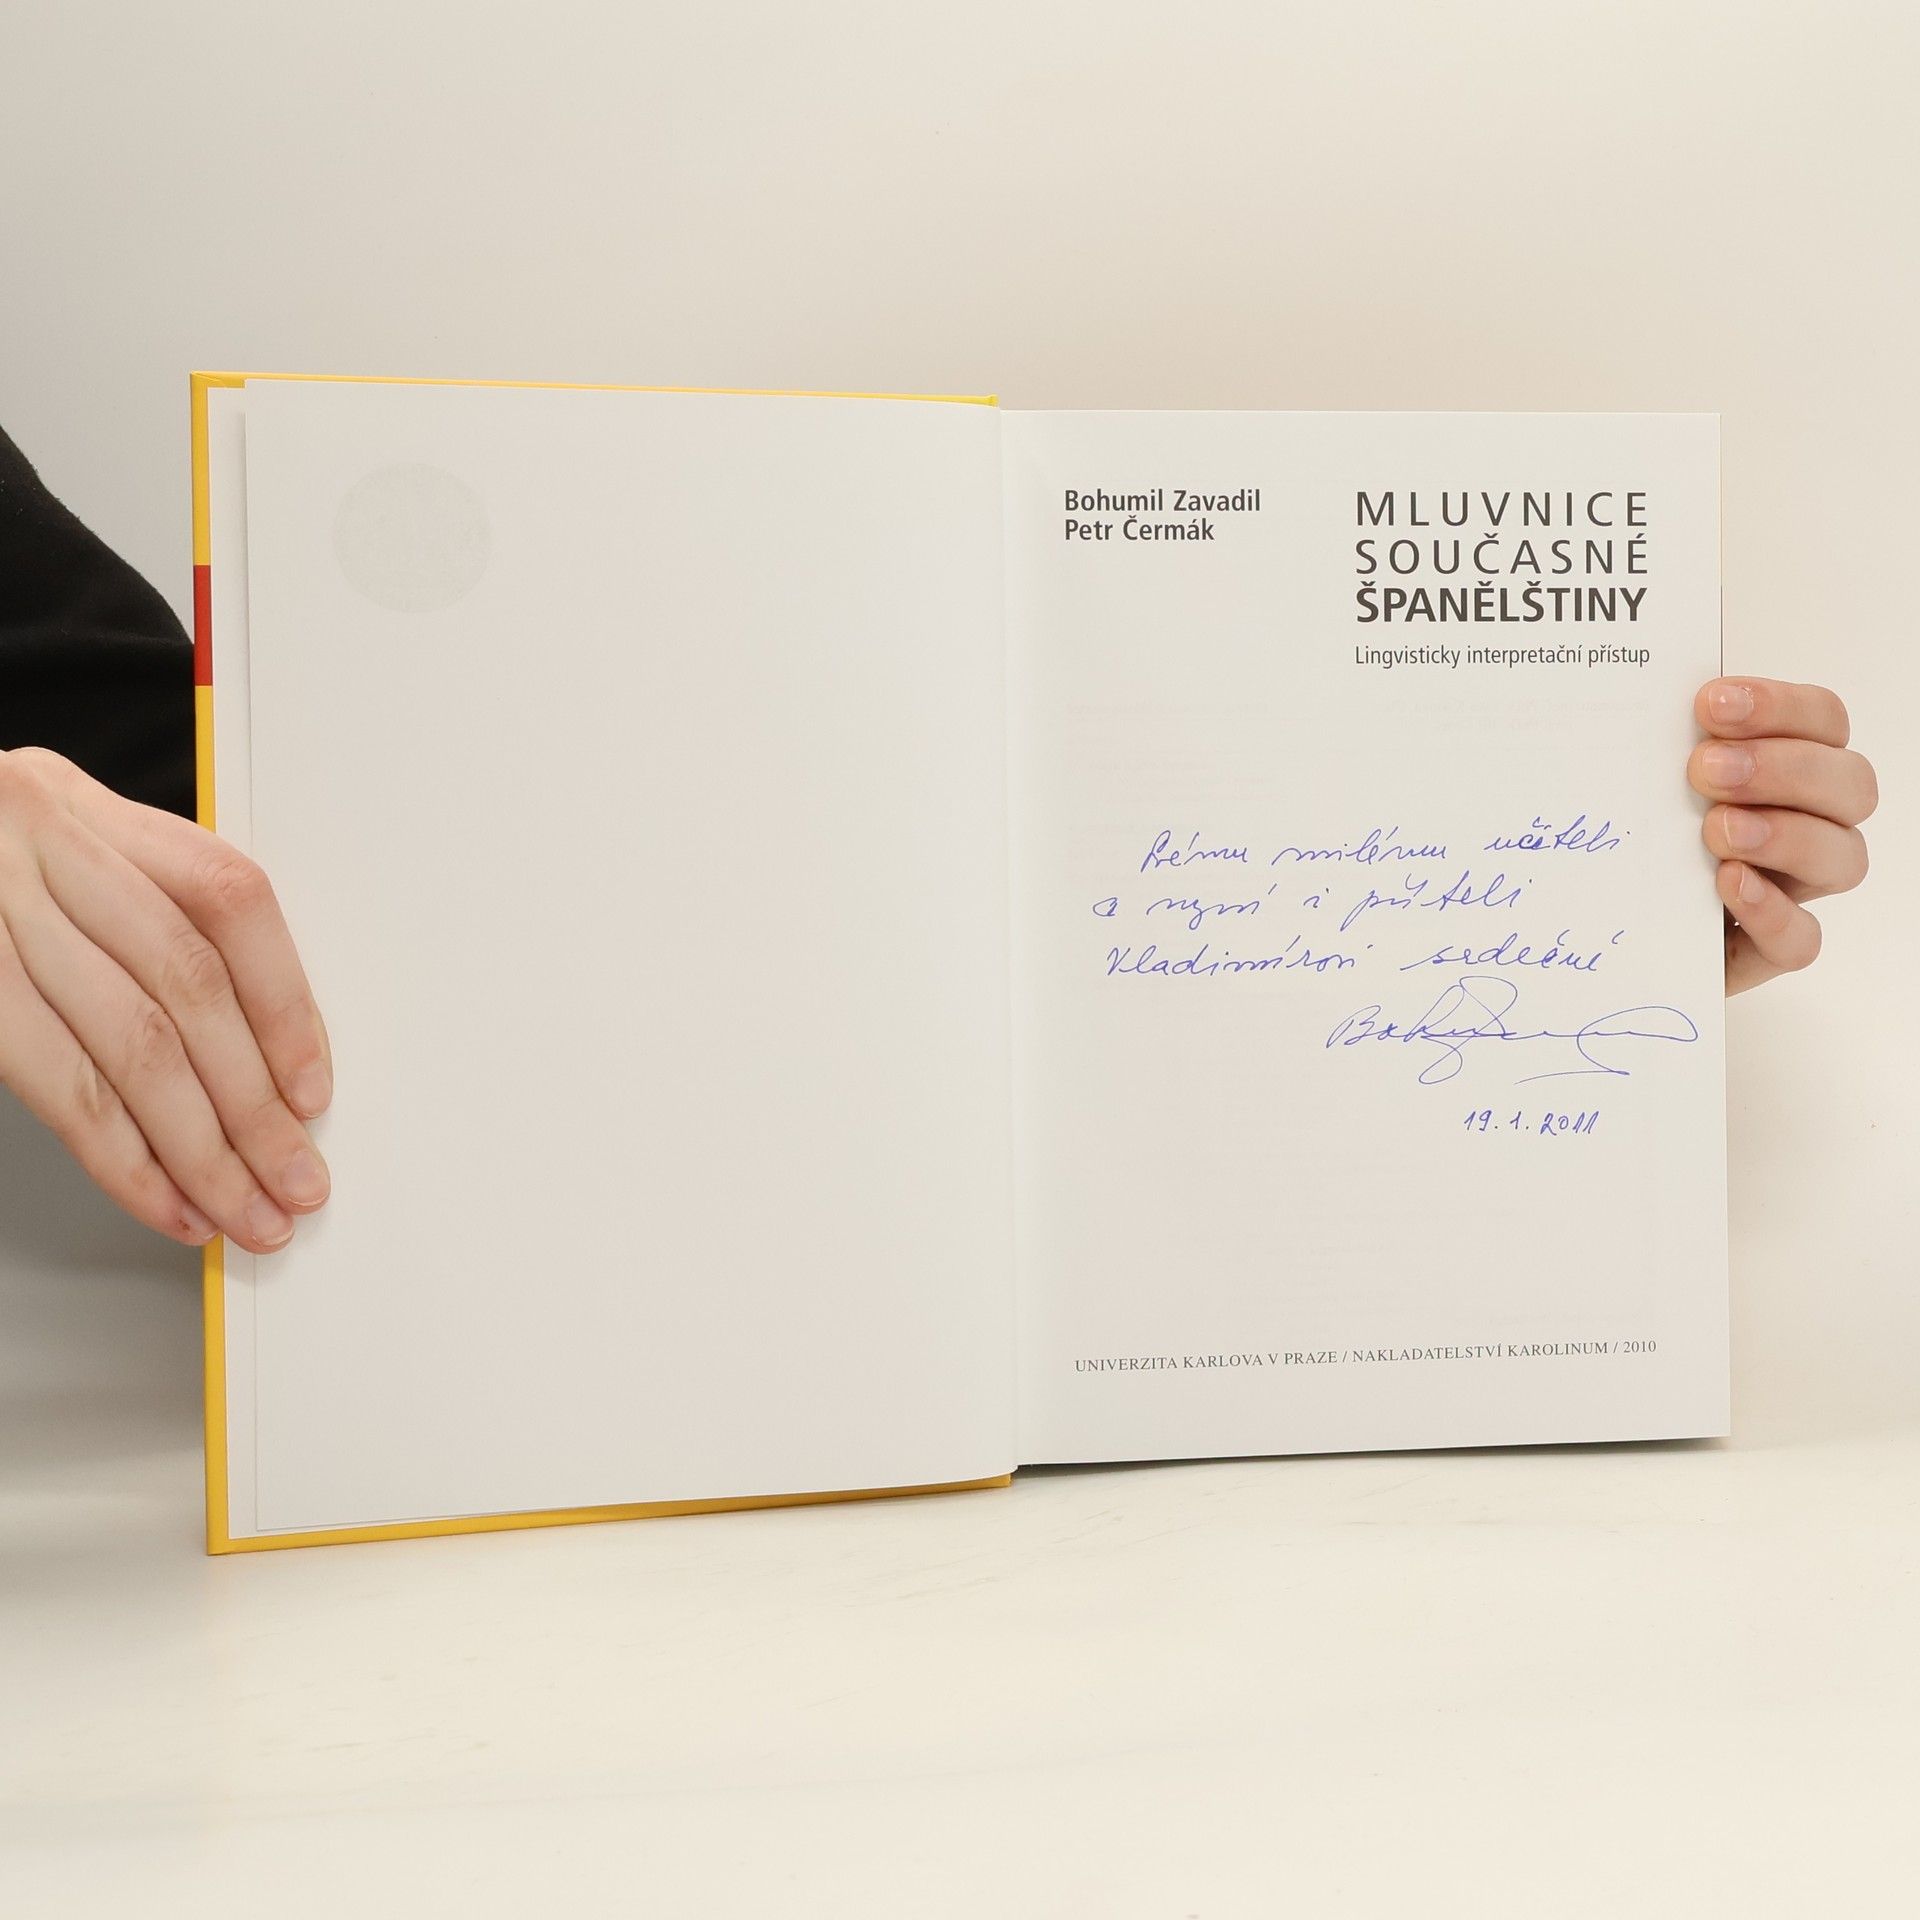 Bohumil Zavadil
Petr Čermák
MLUVNICE
SOUČASNÉ
ŠPANĚLŠTINY
Lingvisticky interpretační přístup
Svému milému učiteli
a nyní i příteli
Vladimírovi srdečně
19. 1. 2011
UNIVERZITA KARLOVA V PRAZE / NAKLADATELSTVÍ KAROLINUM / 2010